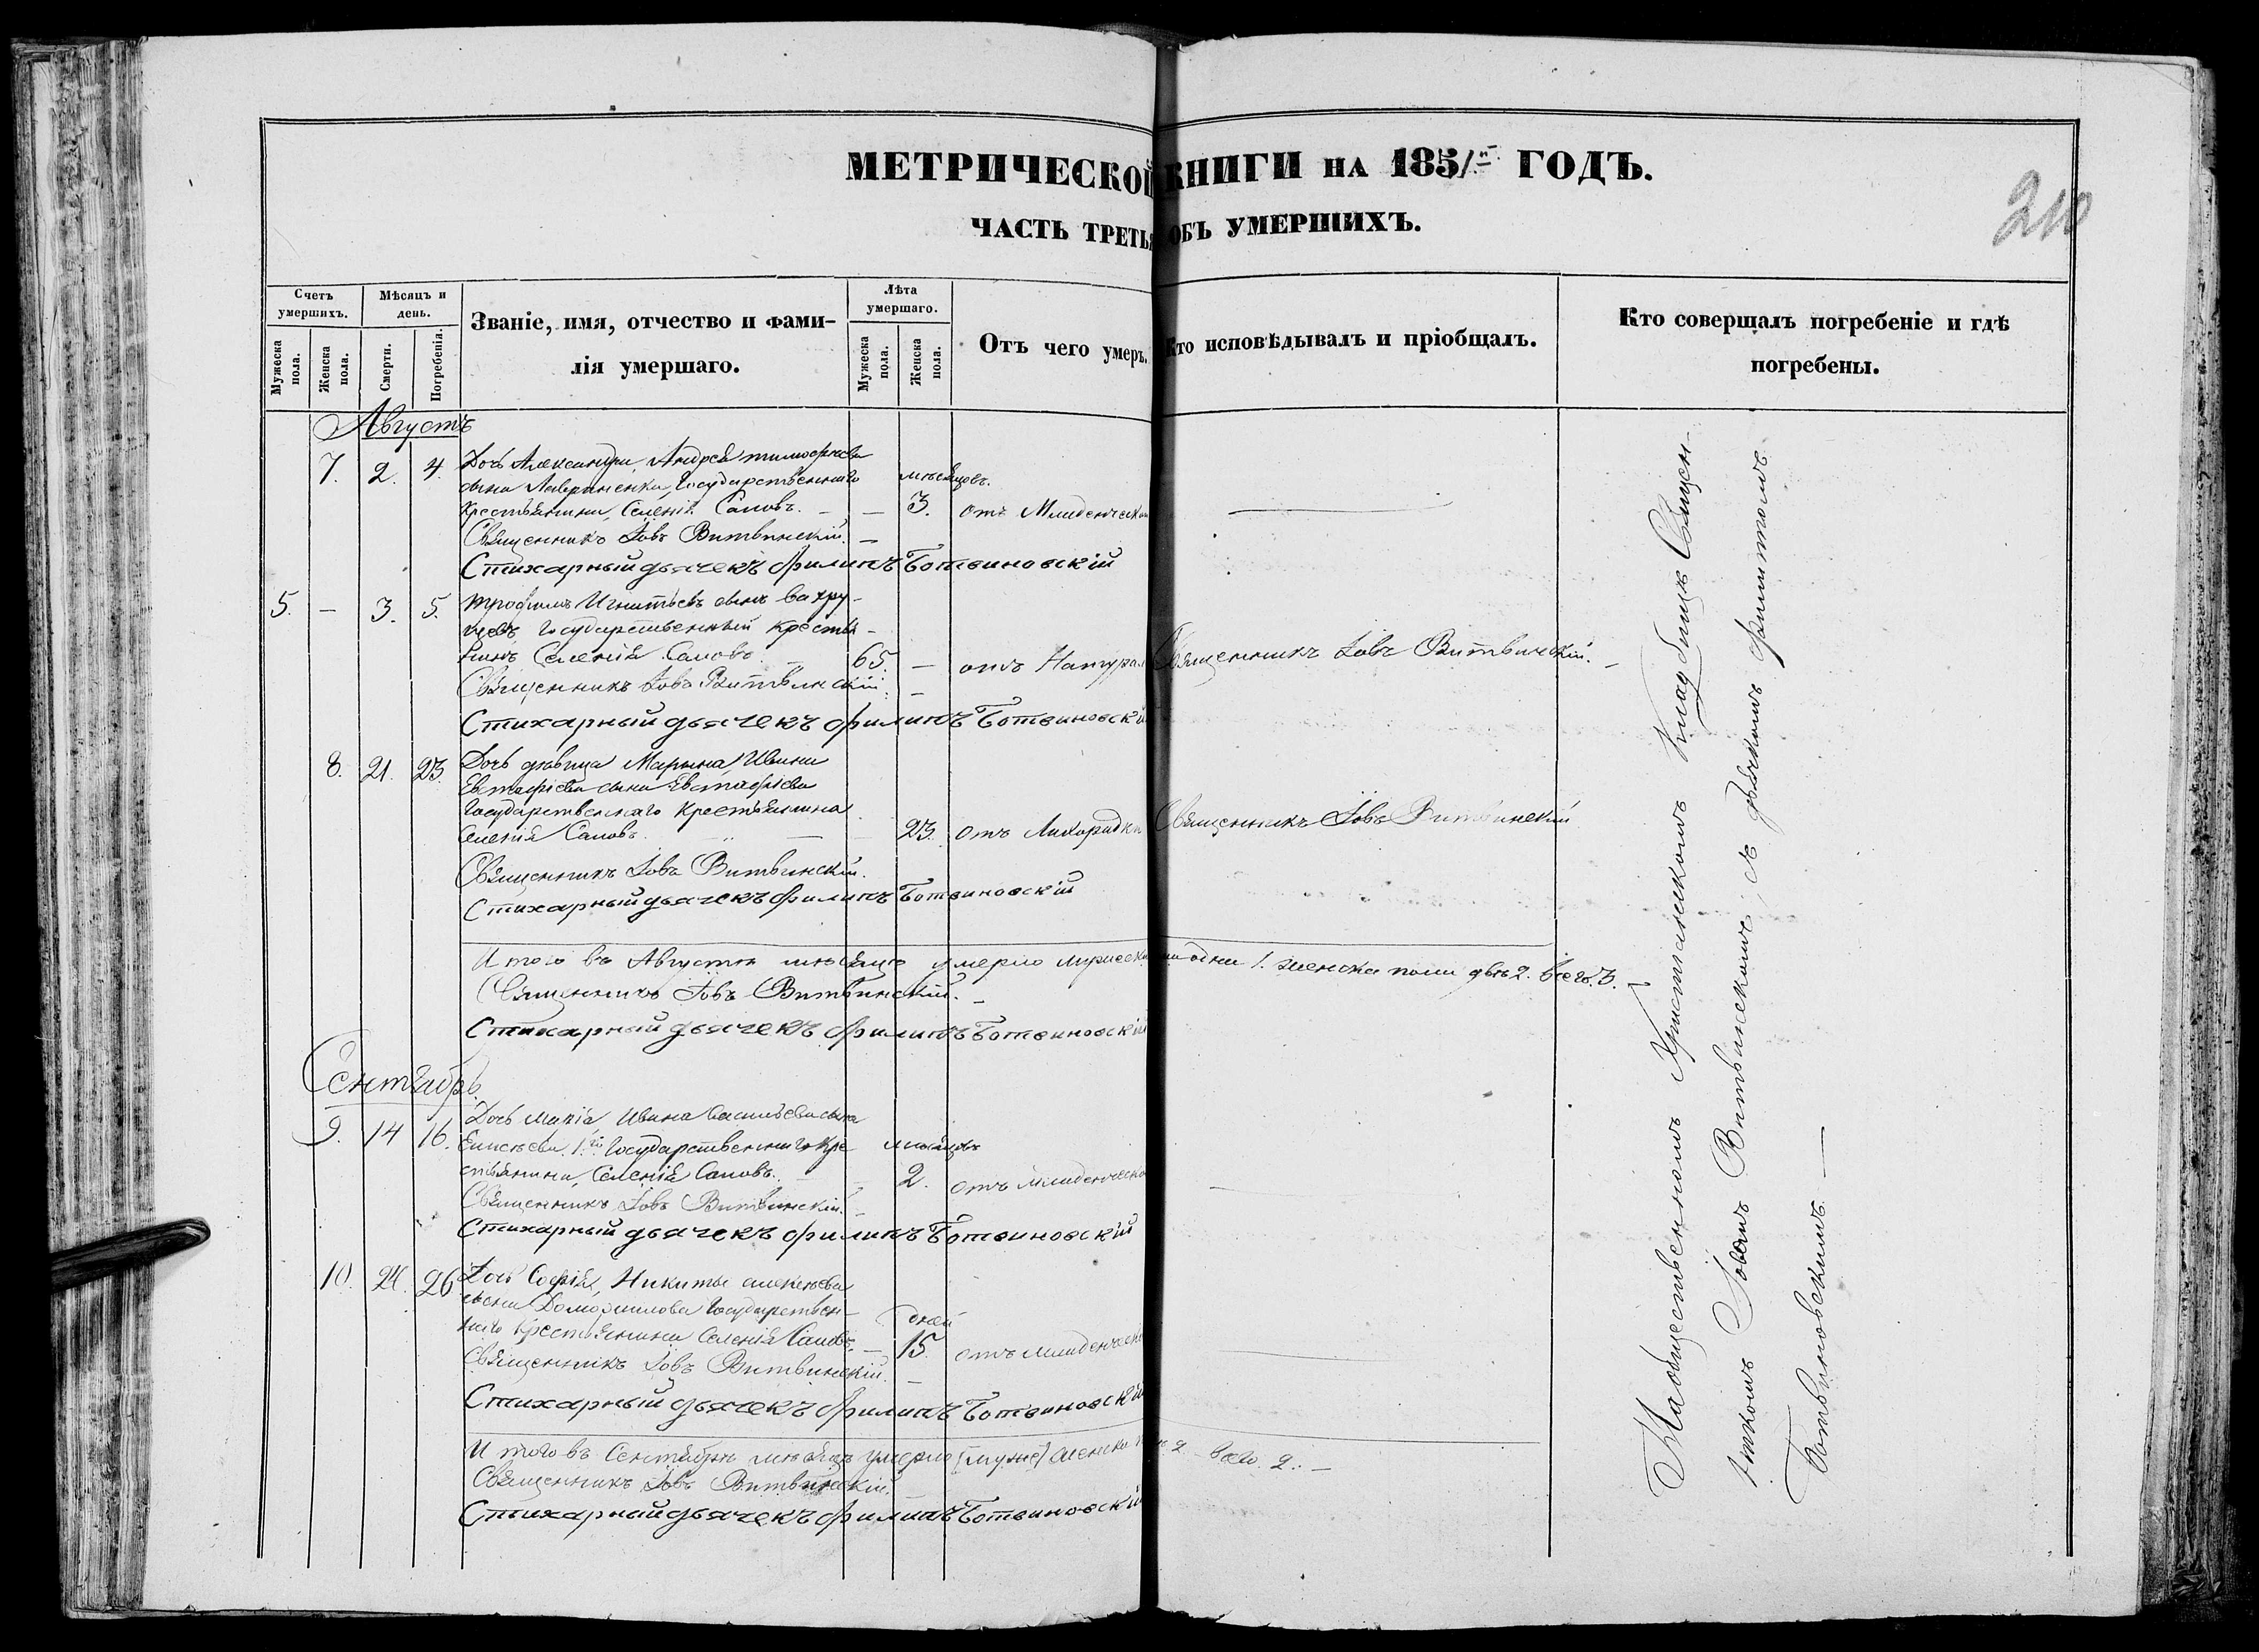 МЕТРИЧЕСКОЙ КНИГИ НА 1851й ГОДЪ.
210
ЧАСТЬ ТРЕТЬЯ ОБЪ УМЕРШИХЪ.
Счетъ умершихъ.
Мужеска пола.
Женска пола.
Мѣсяцъ и день.
Смерти.
Погребенія.
Званіе, имя, отчество и фами-
лія умершаго.
Лѣта умершаго.
Мужеска пола.
Женска пола.
Отъ чего умеръ.
Кто исповѣдывалъ и пріобщалъ.
Кто совершалъ погребеніе и гдѣ
погребены.
Августъ
7. 2. 4. Дочь Александра, Андрея тимофѣева
сына Лавриненка, Государственнаго мѣсяцовъ.
Крестьянина, Селенія Самовъ. — — 3. отъ Младенческой —
Священникъ Іовъ Витвинскій. —
Стихарный дьячекъ Филипъ Ботвиновскій
5. — 3. 5. трофимъ Игнатьевъ сынъ Вахру-
щевъ Государственный крестья-
нинъ Селенія Самовъ. — 65. — отъ Натурал Священникъ Іовъ Витвинскій. —
Священникъ Іовъ Витвинскій. —
Стихарный дьячекъ Филипъ Ботвиновскій
8. 21. 23. Дочь дѣвица Марына, Ивана
Евстафіева сына Евстафіева
Государственнаго Крестьянина
Селенія Самовъ. — — 23. отъ Лихорадки Священникъ Іовъ Витвинскій
Священникъ Іовъ Витвинскій.
Стихарный дьячекъ Филипъ Ботвиновскій
Итого въ Августѣ мѣсяцѣ умерло мужеска одни 1. женска пола двѣ 2. всего. 3. —
Священникъ Іовъ Витвинскій. —
Стихарный дьячекъ Филипъ Ботвиновскій
Сентябрь.
9. 14 16. Дочь Марія, Ивана Васильева сына
Елисѣева 1.го Государственнаго Кре- мѣсяцовъ
стьянина, Селенія Самовъ. — — 2. отъ младенческо —
Священникъ Іовъ Витвинскій. —
Стихарный дьячекъ Филипъ Ботвиновскій
10. 24. 26 Дочь Софія, Никиты алексѣева
сына Государствен- дней
наго Крестьянина Селенія Самовъ. — 15. отъ младенческо —
Священникъ Іовъ Витвинскій. —
Стихарный дьячекъ Филипъ Ботвиновскій
Итого въ Сентябрѣ мѣсяцѣ умерло женска 2 всего. 2. —
Священникъ Іовъ Витвинскій.
Стихарный дьячекъ Филипъ Ботвиновскій
На общественномъ Христіанскомъ Кладбищѣ Священ-
никомъ Іовомъ Витвинскимъ, съ дьякомъ Филиппомъ
Ботвиновскимъ. —